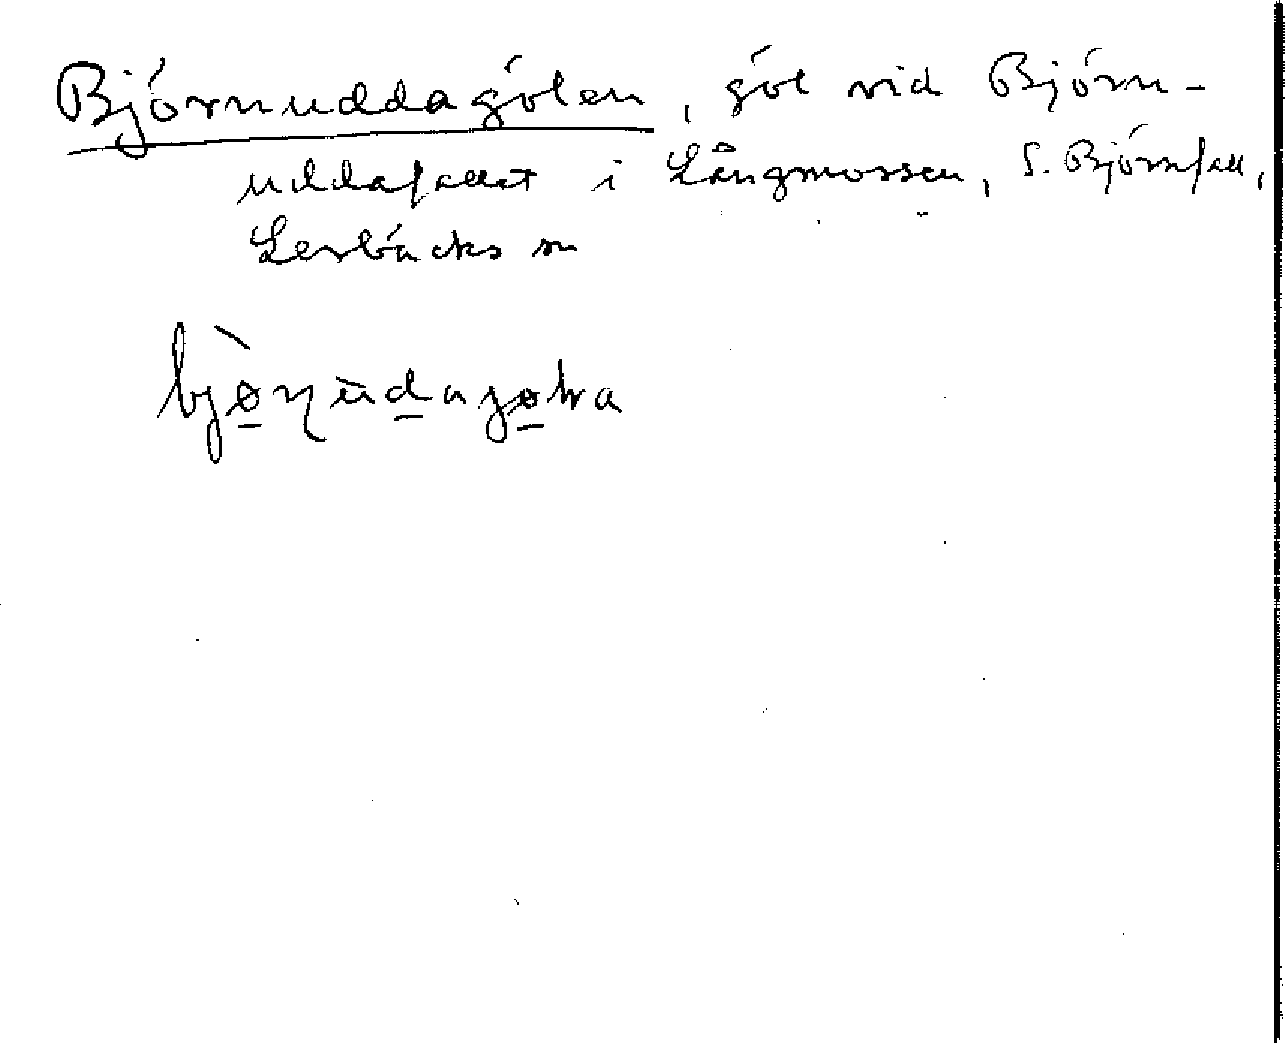 Björnuddagölen, göl vid Björn-
uddafallet i Långmossen, S. Björnfall,
Lerbäcks sn